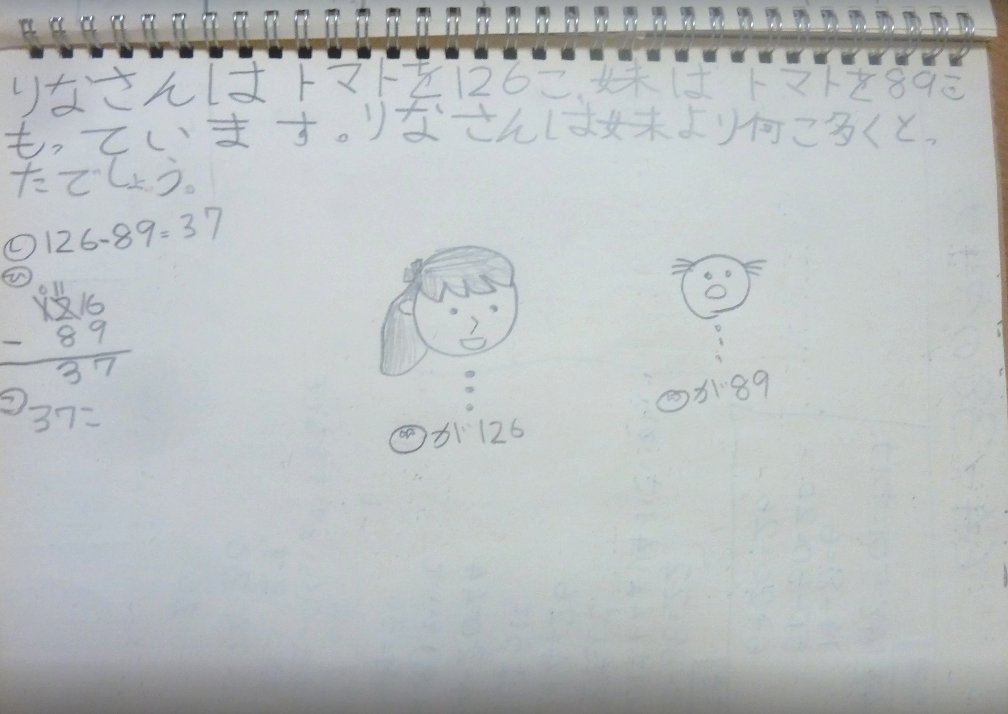 りなさんはトマトを126こ、妹はトマトを89こ
もっています。りなさんは妹より何こ多くとっ
たでしょう。
し126-89=37
ひ
0 11
1216
- 89
37
こ
37こ
が126
が89